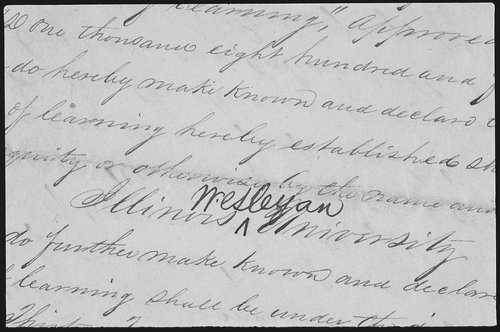 of learning," approved
D one thousand eight hundred and
do hereby make known and declare
of learning hereby established
equity or otherwise by the name and
Illinois Wesleyan University
do further make known and declare
learning shall be under the